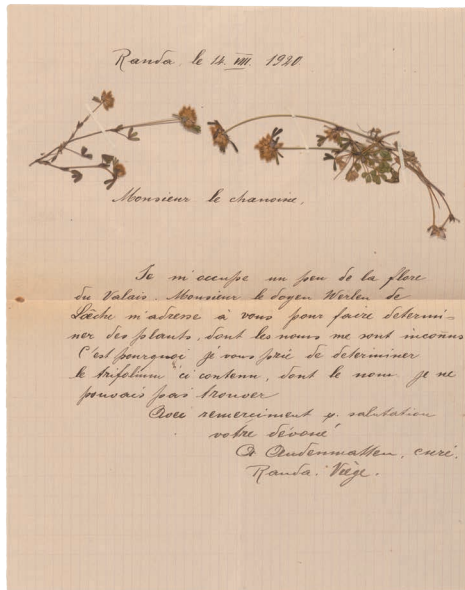 Randa, le 14. VIII. 1920.
Monsieur le chanoine,
Je m'occupe un peu de la flore
du Valais. Monsieur le doyen Werlen de
Lœche m'adresse à vous pour faire determi-
ner des plants, dont les noms me sont inconnus
C'est pourquoi je vous prie de determiner
le trifolium ci contenu, dont le nom je ne
pouvais pas trouver
Avec remerciment & salutation
votre dévoué
A Audenmatten, curé.
Randa. Viège.